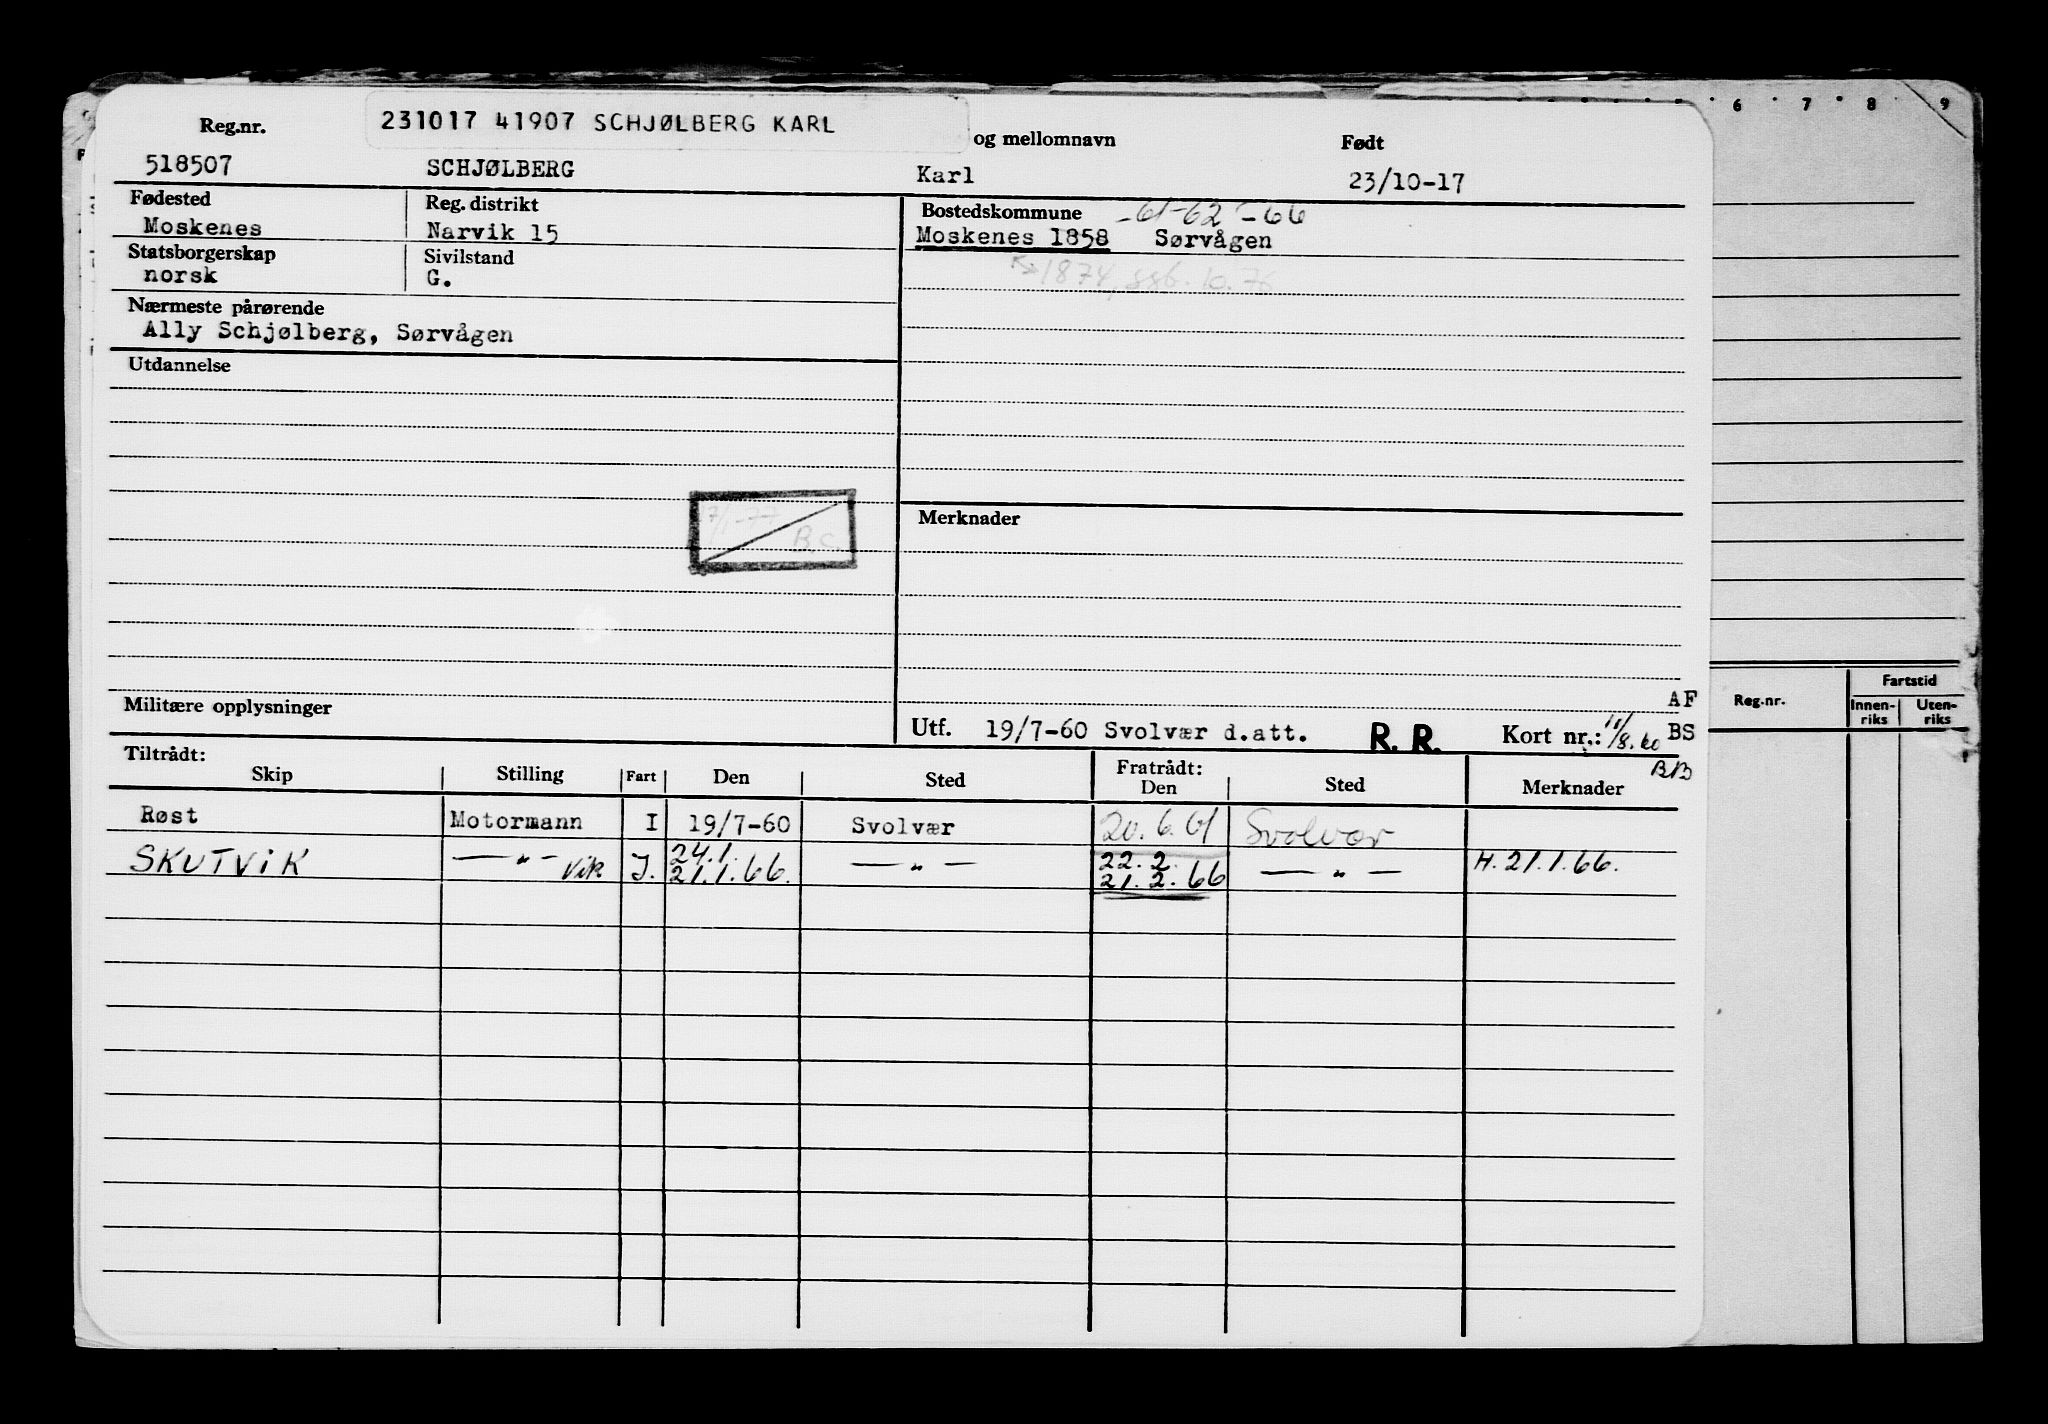 6 7 8 9
Reg.nr. 231017 41907 SCHJØLBERG KARL og mellomnavn Født
518507 SCHJØLBERG Karl 23/10-17
Fødested Reg. distrikt Bostedskommune -61-62-66
Moskenes Narvik 15 Moskenes 1858 Sørvågen
Statsborgerskap Sivilstand
norsk G. 1874, 10.76
Nærmeste pårørende
Ally Schjølberg, Sørvågen
Utdannelse
17/1-77 B.C.
Merknader
AF
Militære opplysninger
Utf. 19/7-60 Svolvær d.att. R. R. Kort nr.: 11/8.60 BS
BB
Tiltrådt: Fratrådt:
Skip Stilling Fart Den Sted Den Sted Merknader
Røst Motormann I 19/7-60 Svolvær 20.6.61 Svolvær
24.1. 22.2.
SKUTVIK —"— Vik J. 21.1.66. —"— 21.2.66 —"— H. 21.1.66.
Reg.nr. Fartstid
Innen- Uten-
riks riks